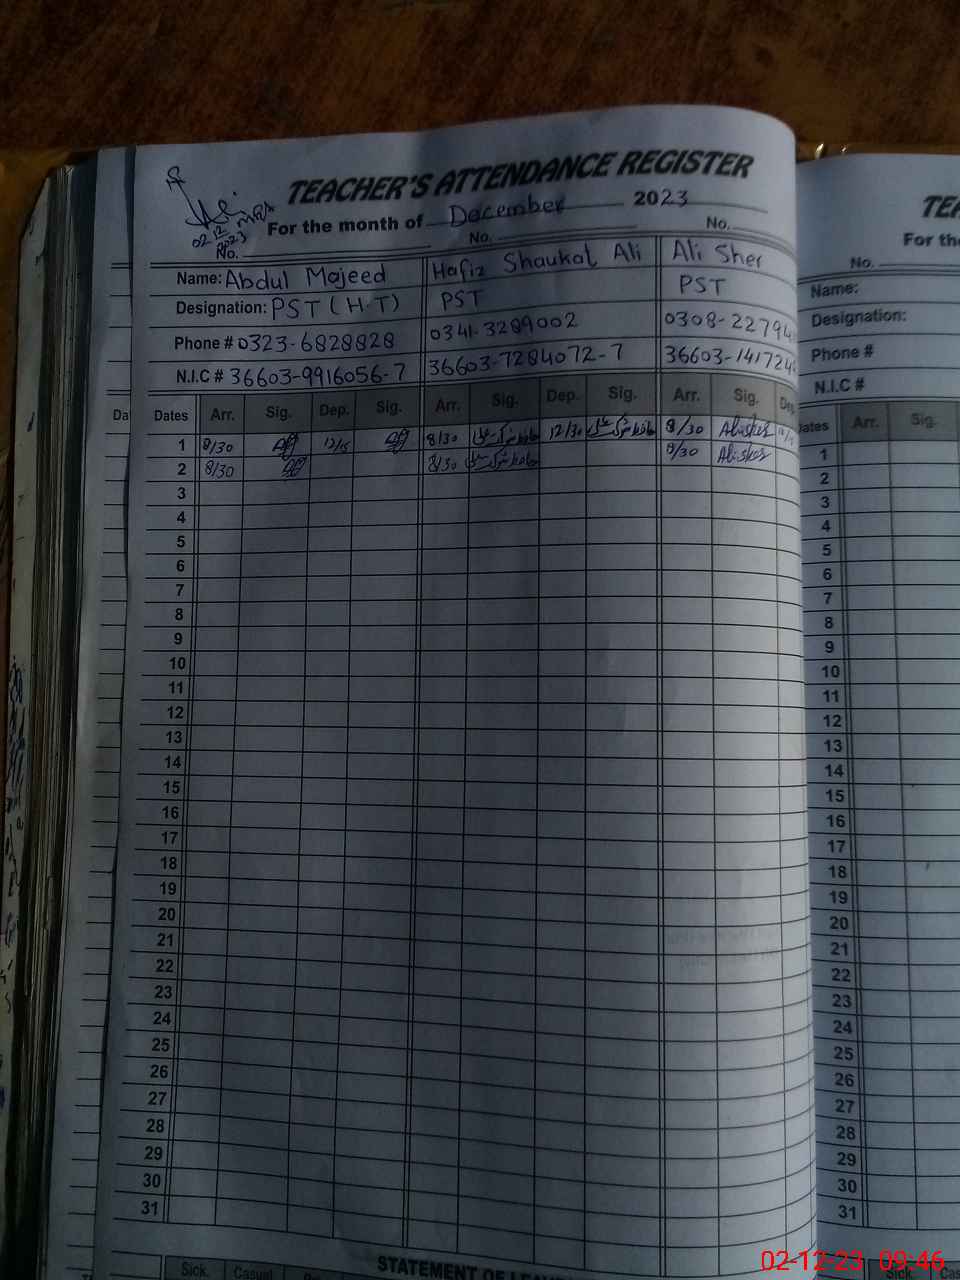 TEACHER'S ATTENDANCE REGISTER
For the month of December 2023
02
12
2023
No. No. No.
Name: Abdul Majeed Hafiz Shaukat Ali Ali Sher
Designation: PST (H.T) PST PST
Phone # 0323-6828828 0341-3289002 0308-22794
N.I.C # 36603-9916056-7 36603-7284072-7 36603-141724
Dates Arr. Sig. Dep. Sig. Arr. Sig. Dep. Sig. Arr. Sig. Dep.
1 8/30 12/15 8/30 حافظ شوکت علی 12/30 حافظ شوکت علی 8/30 Alisher
2 8/30 8/30 حافظ شوکت علی 8/30 Alisher
3
4
5
6
7
8
9
10
11
12
13
14
15
16
17
18
19
20
21
22
23
24
25
26
27
28
29
30
31
STATEMENT OF
Sick. Casual
TEA
For the
No.
Name:
Designation:
Phone #
N.I.C #
Dates Arr. Sig.
1
2
3
4
5
6
7
8
9
10
11
12
13
14
15
16
17
18
19
20
21
22
23
24
25
26
27
28
29
30
31
Sick. Cas
02-12-23 09:46